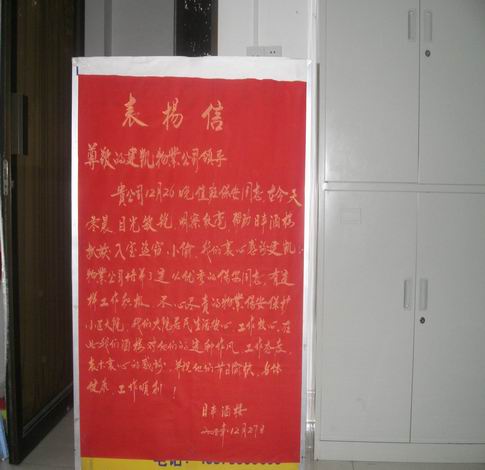 表扬信
尊敬的建凯物业公司领导
贵公司12月26晚值班保安同志,在今天
凌晨目光敏锐,明察秋毫,帮助日丰酒楼
抓获入室盗窃小偷,我们衷心感谢建凯
物业公司培养了这么优秀的保安同志,有这
样工作积极,尽心尽责的物业保安保护
小区大院,我们大院居民生活安心,工作放心,在
此我们酒楼对他们的这种作风,工作态度,
表示衷心的感谢,并祝他们节日愉快,身体
健康,工作顺利!
日丰酒楼
12月27日
电话: